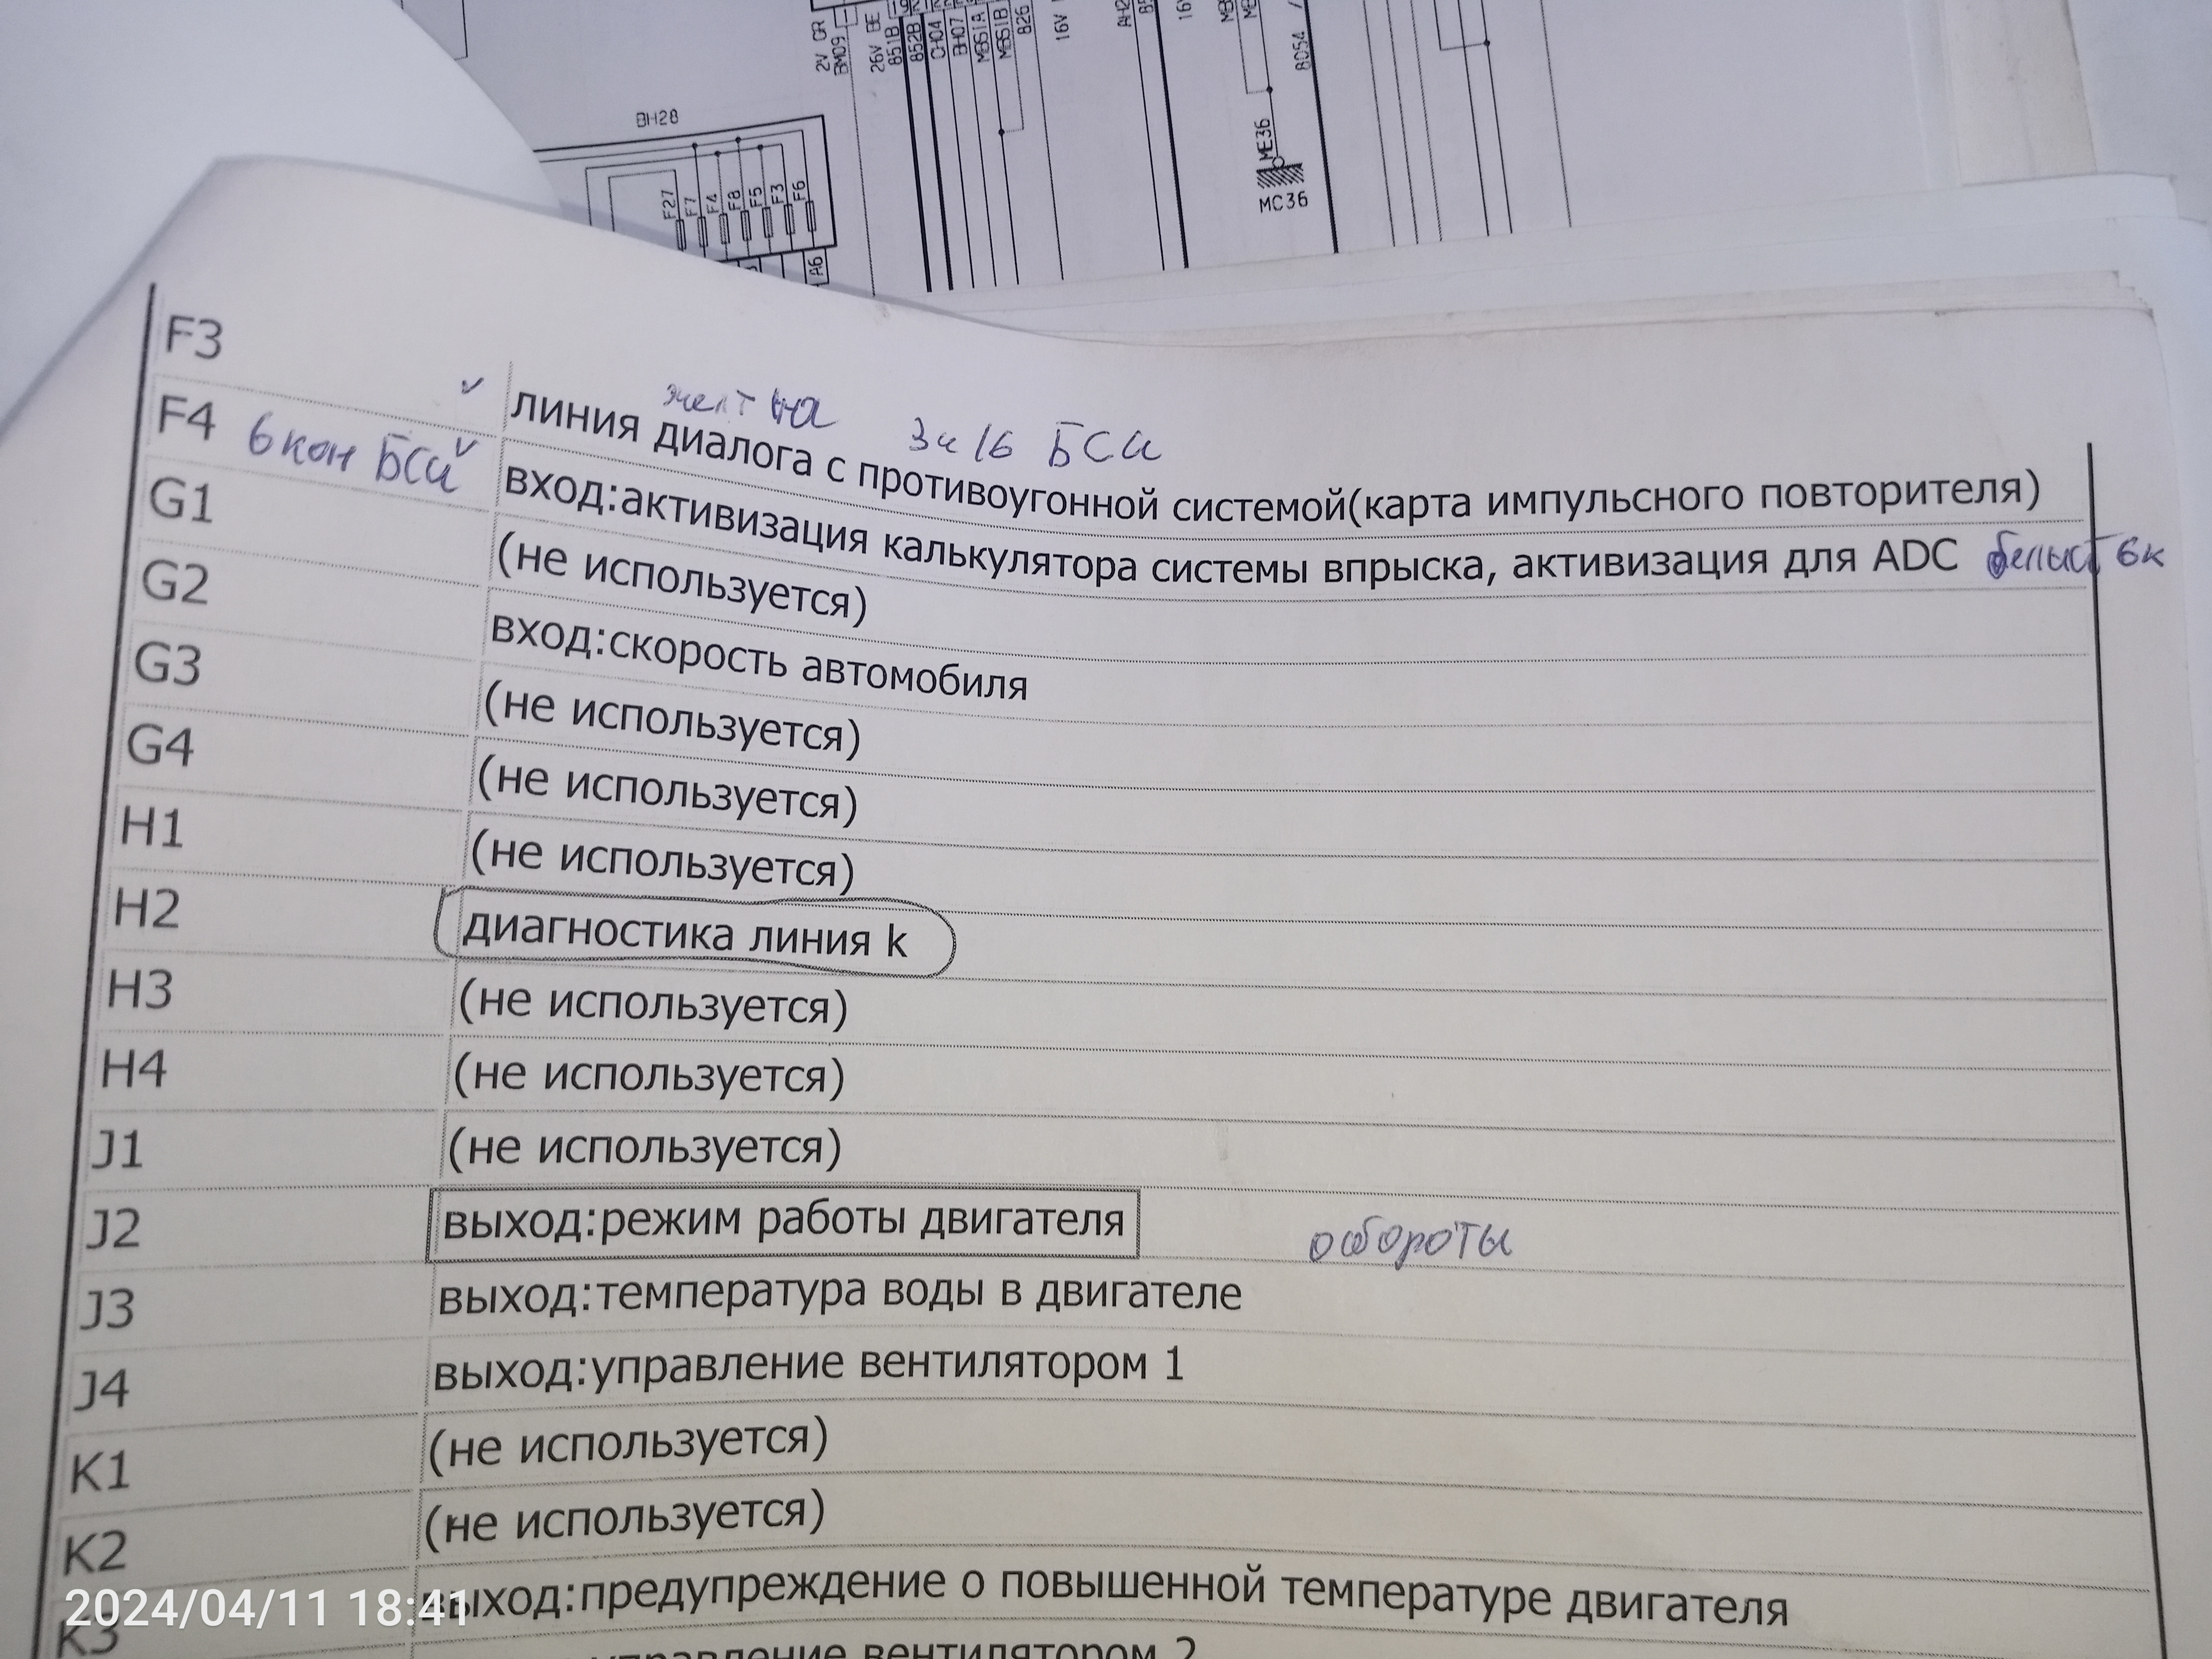 2V GR
BM09
26V BE
851B
852B
CH04
BH07
M861A
M861B
826
16V
BH28
F27
F7
F4
F8
F5
F3
F6
A6
ME36
MC36
805A
F3
желт на
3ч 16 БСи
линия диалога с противоугонной системой(карта импульсного повторителя)
F4 6 кон БСи вход:активизация калькулятора системы впрыска, активизация для ADC 6к
G1 (не используется)
G2 вход:скорость автомобиля
G3 (не используется)
G4 (не используется)
H1 (не используется)
H2 диагностика линия k
H3 (не используется)
H4 (не используется)
J1 (не используется)
J2 выход:режим работы двигателя обороты
J3 выход:температура воды в двигателе
J4 выход:управление вентилятором 1
K1 (не используется)
K2 (не используется)
K3 выход:предупреждение о повышенной температуре двигателя
управление вентилятором 2
2024/04/11 18:41